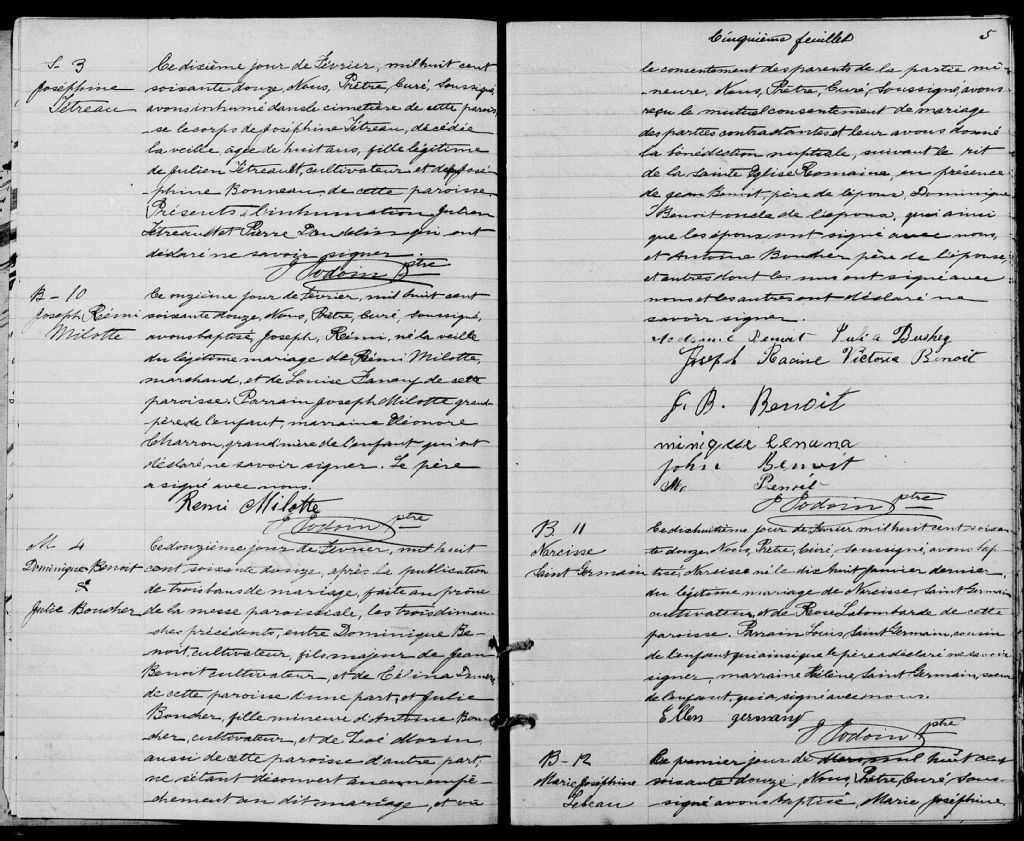 S. 3
Joséphine
Tétreau
Ce dixième jour de Février, mil huit cent
soixante douze, Nous, Prêtre, Curé, soussigné,
avons inhumé dans le cimetière de cette parois-
se le corps de Joséphine Tétreau, décédée
la veille, agée de huit ans, fille légitime
de Julien Tétreault, cultivateur et de José-
phine Bonneau, de cette paroisse.
Présents à l'inhumation, Julien
Tétreault et Pierre qui ont
déclaré ne savoir signer.
J Jodoin Ptre
B - 10
Joseph Rémi
Milotte
Ce onzième jour de Février, mil huit cent
soixante douze, Nous, Prêtre, Curé, soussigné,
avons baptisé, Joseph, Rémi, né la veille
du légitime mariage de Rémi Milotte,
marchand, et de Louise de cette
paroisse. Parrain Joseph Milotte grand-
père de l'enfant, marraine Eléonore
Charron, grand'mère de l'enfant qui ont
déclaré ne savoir signer. Le père
a signé avec nous.
Remi Milotte
J Jodoin Ptre
M 4
Dominique Benoit
&
Julie Boucher
Ce douzième jour de Février, mil huit
cent soixante douze, après la publication
de trois bans de mariage, faite au prône
de la messe paroissiale, les trois diman-
ches précédents, entre Dominique Be-
noit, cultivateur, fils majeur de Jean
Benoit cultivateur, et de Célina
de cette paroisse d'une part, et Julie
Boucher, fille mineure d'Antoine Bou-
cher, cultivateur, et de Zoé Morin,
aussi de cette paroisse d'autre part;
ne s'étant découvert aucun empê-
chement au dit mariage, et vu
Cinquième feuillet
5
le consentement des parents de la partie mi-
neure, Nous, Prêtre, Curé, soussigné, avons
reçu le mutuel consentement de mariage
des parties contractantes et leur avons donné
la bénédiction nuptiale, suivant le rit
de la Sainte Eglise Romaine, en présence
de Jean Benoit, père de l'époux, Dominique
Benoit oncle de l'époux, qui ainsi
que les époux ont signé avec nous,
et Antoine Boucher père de l'épouse
et autres dont les uns ont signé avec
nous et les autres ont déclaré ne
savoir signer.
Benoit Julia
Joseph Racine Victoria Benoit
J. B. Benoit
John Benoit
Benoit
J Jodoin Ptre
B 11
Narcisse
Saint Germain
Ce dixhuitième jour de Février mil huit cent soixan-
te douze, Nous, Prêtre, Curé, soussigné, avons bap-
tisé, Narcisse né le dix huit janvier dernier,
du légitime mariage de Narcisse, Saint Germain
cultivateur, et de Rose Labombarde de cette
paroisse. Parrain Louis, Saint Germain, cousin
de l'enfant qui ainsi que le père a déclaré ne savoir
signer, marraine Hélène, Saint Germain, soeur
de l'enfant, qui a signé avec nous.
Ellen germany
J Jodoin Ptre
B - 12
Marie Joséphine
Lebeau
Le premier jour de Mars mil huit cent
soixante douze, Nous, Prêtre, Curé, sous-
signé avons baptisé, Marie Joséphine,